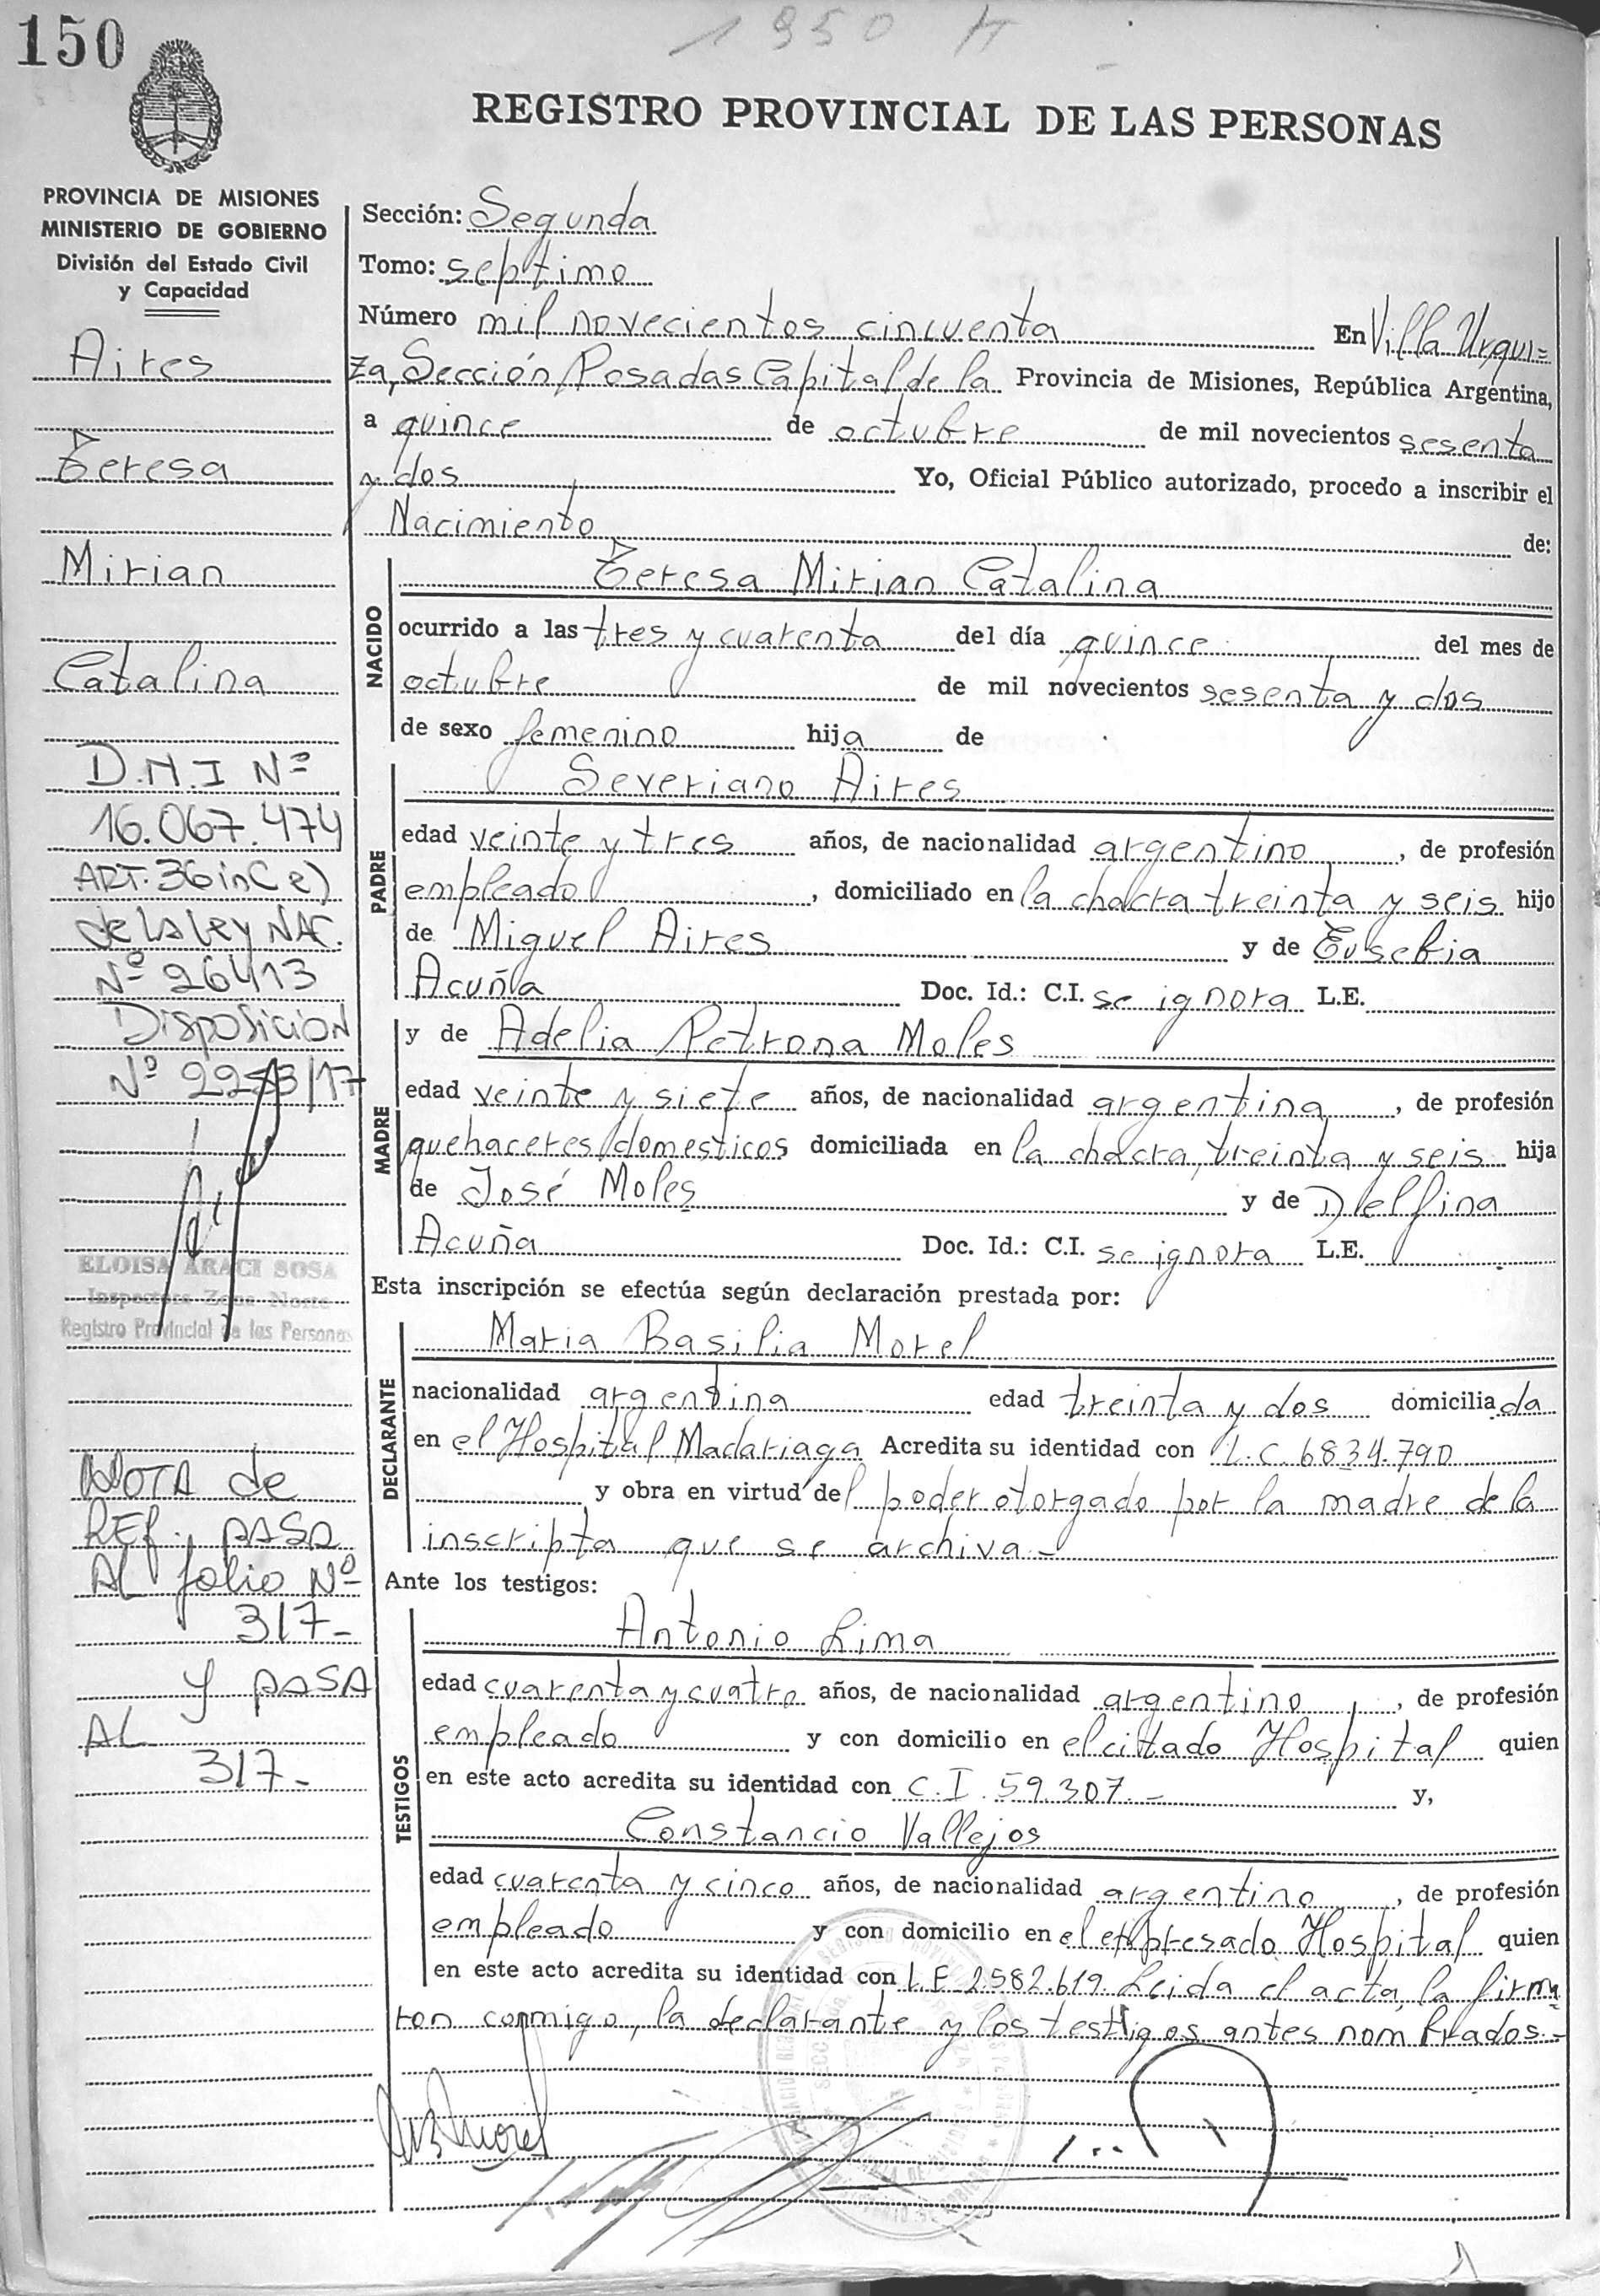 150
1950 H
REGISTRO PROVINCIAL DE LAS PERSONAS
PROVINCIA DE MISIONES
MINISTERIO DE GOBIERNO
División del Estado Civil
y Capacidad
Aires
Teresa
Mirian
Catalina
D.N.I Nº
16.067.474
ART. 36 inC e)
de la ley NAC.
Nº 26413
Disposicion
Nº /17
ELOISA ARACI SOSA
Inspectora Zona Norte
Registro Provincial de las Personas
NOTA de
REf. PASA
AL folio Nº
317-
y PASA
AL
317-
Sección: Segunda
Tomo: septimo
Número mil novecientos cincuenta En Villa Urqui=
za, Sección Posadas Capital de la Provincia de Misiones, República Argentina,
a quince de octubre de mil novecientos sesenta
y dos Yo, Oficial Público autorizado, procedo a inscribir el
Nacimiento de:
NACIDO
Teresa Mirian Catalina
ocurrido a las tres y cuarenta del día quince del mes de
octubre de mil novecientos sesenta y dos
de sexo femenino hija de
PADRE
Severiano Aires
edad veinte y tres años, de nacionalidad argentino, de profesión
empleado, domiciliado en la chacra treinta y seis hijo
de Miguel Aires y de Eusebia
Acuña Doc. Id.: C.I. se ignora L.E.
MADRE
y de Adelia Petrona Moles
edad veinte y siete años, de nacionalidad argentina, de profesión
quehaceres domesticos domiciliada en la chacra, treinta y seis hija
de José Moles y de Delfina
Acuña Doc. Id.: C.I. se ignora L.E.
Esta inscripción se efectúa según declaración prestada por:
DECLARANTE
Maria Basilia Morel
nacionalidad argentina edad treinta y dos domiciliada
en el Hospital Madariaga Acredita su identidad con L.C. 6834.790
y obra en virtud del poder otorgado por la madre de la
inscripta que se archiva.-
Ante los testigos:
TESTIGOS
Antonio Lima
edad cuarenta y cuatro años, de nacionalidad argentino, de profesión
empleado y con domicilio en el citado Hospital quien
en este acto acredita su identidad con C.I. 59.307.- y,
Constancio Vallejos
edad cuarenta y cinco años, de nacionalidad argentino, de profesión
empleado y con domicilio en el expresado Hospital quien
en este acto acredita su identidad con L.E 2.582.619. Leida el acta, la firma
ron conmigo, la declarante y los testigos antes nombrados.-